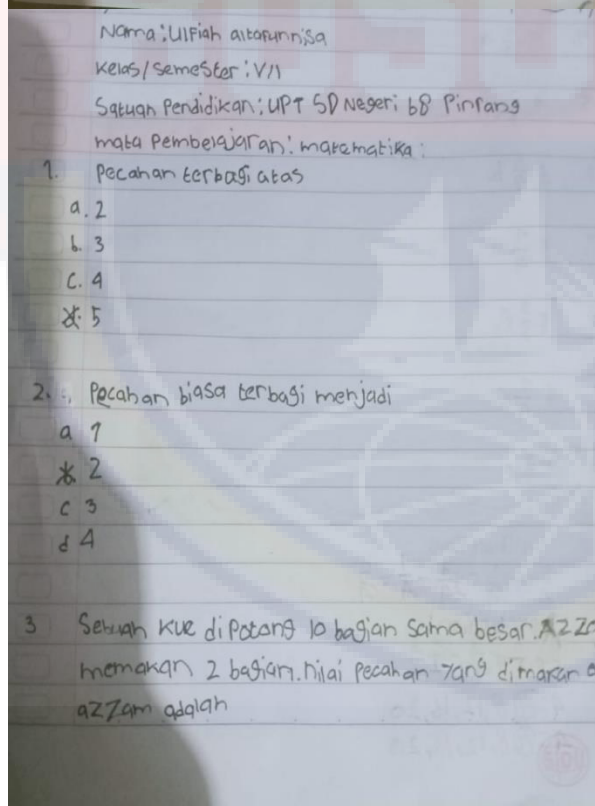 Nama : Ulfiah altafunnisa
Kelas/Semester : V/1
Satuan Pendidikan : UPT SD Negeri 68 Pinrang
mata Pembelajaran : matematika :
1. Pecahan terbagi atas
a. 2
b. 3
c. 4
d. 5
2. Pecahan biasa terbagi menjadi
a 1
b 2
c 3
d 4
3 Sebuah Kue di Potong 10 bagian sama besar. AZZa
memakan 2 bagian. nilai Pecahan yang dimakan
azzam adalah